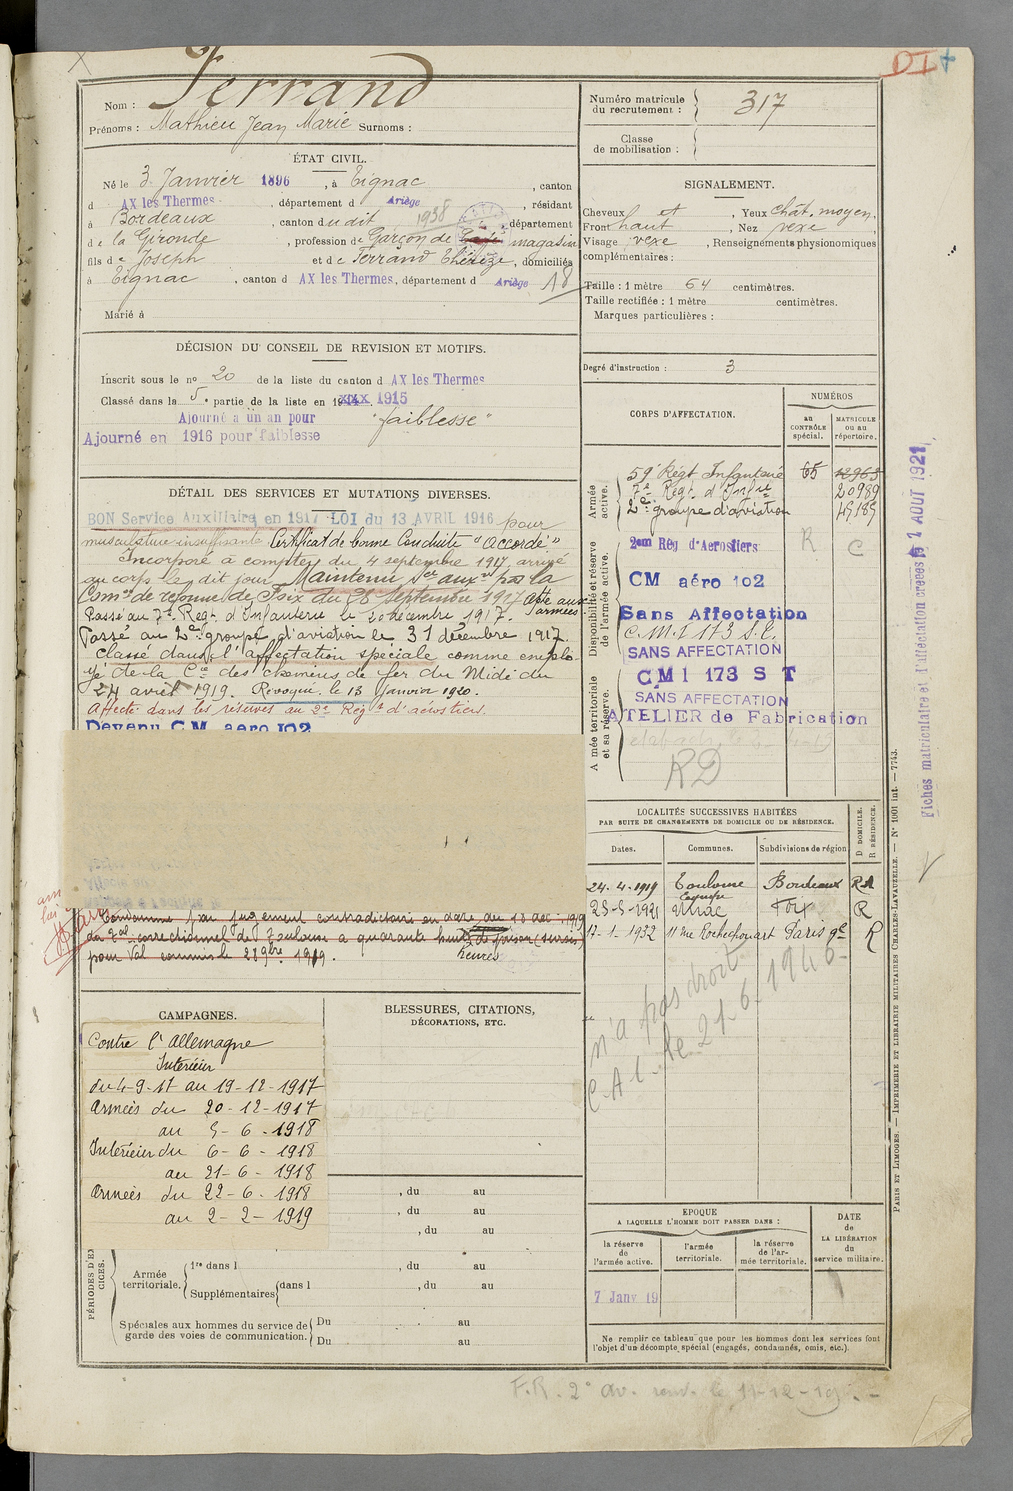 DI +
Nom : Ferrand
Prénoms : Mathieu Jean Marie Surnoms :
ÉTAT CIVIL.
Né le 3 Janvier 1896, à Tignac, canton
d AX les Thermes, département d Ariège, résidant
à Bordeaux, canton du dit 1938 département
de la Gironde, profession de Garçon de magasin
fils de Joseph et de Ferrand Thérèze, domiciliés
à Tignac, canton d AX les Thermes, département d Ariège 18
Marié à
DÉCISION DU CONSEIL DE REVISION ET MOTIFS.
Inscrit sous le no 20 de la liste du canton d AX les Thermes
Classé dans la 5e partie de la liste en 1915
Ajourné à un an pour "faiblesse"
Ajourné en 1916 pour faiblesse
DÉTAIL DES SERVICES ET MUTATIONS DIVERSES.
BON Service Auxiliaire en 1917 - LOI du 13 AVRIL 1916 pour
musculature insuffisante. Certificat de bonne Conduite "Accordé"
Incorporé à compter du 4 septembre 1917, arrivé
au corps le dit jour. Maintenu Sce auxre par la
Comon de réforme de Foix du 28 septembre 1917 apte aux armées.
Passé au 7e Regt d'Infanterie le 20 décembre 1917.
Passé au 2e groupe d'aviation le 31 décembre 1917.
Classé dans l'affectation spéciale comme emplo-
yé de la Cie des chemins de fer du Midi du
24 avril 1919. Révoqué le 13 Janvier 1920.
Affecté dans les réserves au 2e Regt d'aérostiers.
Devenu C.M. aero 102
Condamné par jugement contradictoire en date du 18 dec. 1919
du Tal correctionnel de Toulouse à quarante huit heures de prison (sursis)
pour Vol commis le 28 9bre 1919.
CAMPAGNES.
Contre l'Allemagne
Intérieur
du 4-9-17 au 19-12-1917
Armées du 20-12-1917
au 5-6-1918
Intérieur du 6-6-1918
au 21-6-1918
Armées du 22-6-1918
au 2-2-1919
BLESSURES, CITATIONS,
DÉCORATIONS, ETC.
, du au
, du au
, du au
PÉRIODES D'EX
CICES.
Armée
territoriale.
1re dans l , du au
Supplémentaires dans l , du au
Spéciales aux hommes du service de
garde des voies de communication.
Du au
Du au
Numéro matricule
du recrutement : 317
Classe
de mobilisation :
SIGNALEMENT.
Cheveux et, Yeux chât. moyen,
Front haut, Nez vexe,
Visage vexe, Renseignements physionomiques
complémentaires :
Taille : 1 mètre 64 centimètres.
Taille rectifiée : 1 mètre centimètres.
Marques particulières :
Degré d'instruction : 3
CORPS D'AFFECTATION.
NUMÉROS
AU
CONTRÔLE
spécial.
MATRICULE
OU AU
répertoire.
Armée
active.
59e Régt Infanterie 65 12963
7e Régt d'Infie 20989
2e groupe d'aviation 45185
Disponibilité et réserve
de l'armée active.
2em Rég d'Aerostiers R C
CM aéro 102
Sans Affectation
C.M.I 173 S.T.
SANS AFFECTATION
CMI 173 S T
A mée territoriale
et sa réserve.
SANS AFFECTATION
ATELIER de Fabrication
RD
LOCALITÉS SUCCESSIVES HABITÉES
PAR SUITE DE CHANGEMENTS DE DOMICILE OU DE RÉSIDENCE.
Dates. Communes. Subdivisions de région
D DOMICILE.
R RÉSIDENCE.
24.4.1919 Toulouse Bordeaux R
23-5-1921 Urnac Foix R
17-1-1932 11 rue Rochechouart Paris 9e R
n'a pas droit
C.A.C. le 21.6.1946-
EPOQUE
A LAQUELLE L'HOMME DOIT PASSER DANS :
la réserve
de
l'armée active.
l'armée
territoriale.
la réserve
de l'ar-
mée territoriale.
DATE
de
LA LIBÉRATION
du
service militaire.
7 Janv 19
Ne remplir ce tableau que pour les hommes dont les services font
l'objet d'un décompte spécial (engagés, condamnés, omis, etc.).
Fiches matriculaire et d'affectation créées le 1 AOUT 1921
PARIS ET LIMOGES. — IMPRIMERIE ET LIBRAIRIE MILITAIRES CHARLES-LAVAUZELLE. — No 1001 int. — 7743.